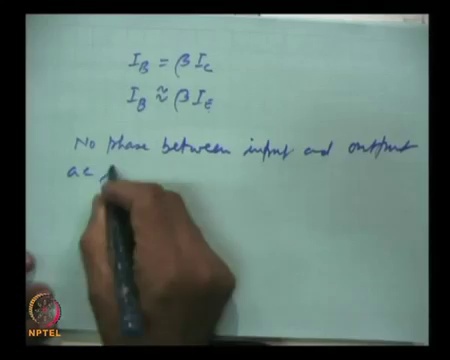 I_B = βI_C
I_B ≈ βI_E
No phase between input and output
ac
NPTEL